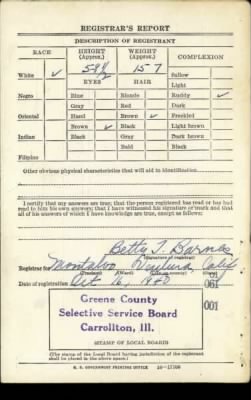 REGISTRAR'S REPORT
DESCRIPTION OF REGISTRANT
RACE HEIGHT (Approx.) WEIGHT (Approx.) COMPLEXION
White ✓ 5-9½ 157 Sallow
EYES HAIR Light
Negro Blue Blonde Ruddy ✓
Gray Red Dark
Oriental Hazel Brown ✓ Freckled
Brown ✓ Black Light brown
Indian Black Gray Dark brown
Bald Black
Filipino
Other obvious physical characteristics that will aid in identification
I certify that my answers are true; that the person registered has read or has had
read to him his own answers; that I have witnessed his signature or mark and that
all of his answers of which I have knowledge are true, except as follows:
Betty T. Barnes
(Signature of registrar)
Registrar for Montalvo Ventura Calif
(Precinct) (Ward) (City or county) (State)
Date of registration Oct 16, 1940
61
061
001
Greene County
Selective Service Board
Carrollton, Ill.
STAMP OF LOCAL BOARD
(The stamp of the Local Board having jurisdiction of the registrant
shall be placed in the above space.)
U. S. GOVERNMENT PRINTING OFFICE